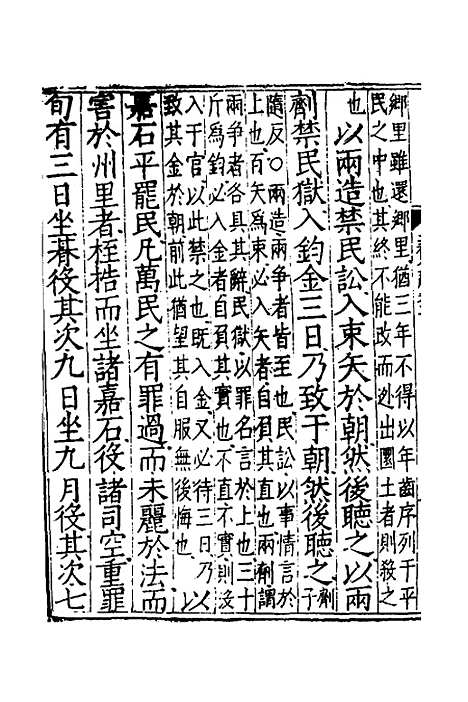 鄉里雖還鄉里猶三年不得以年齒序列于平
民之中也其終不能改而迯出圜土者則殺之
也以兩造禁民訟入束矢於朝然後聽之以兩
劑禁民獄入鈞金三日乃致于朝然後聽之劑子
隨反○兩造兩争者皆至也民訟以事情言於
上也百矢爲束必入矢者自負其直也兩劑謂
兩争者各具其辭民獄以罪名言於上也三十
斤爲鈞必入金者自負其實也不直不實則没
入于官以此禁之也既入金又必待三日乃
致其金於朝前此猶望其自服無後悔也以
嘉石平罷民凡萬民之有罪過而未麗於法而
害於州里者桎梏而坐諸嘉石役諸司空重罪
旬有三日坐朞役其次九日坐九月役其次七